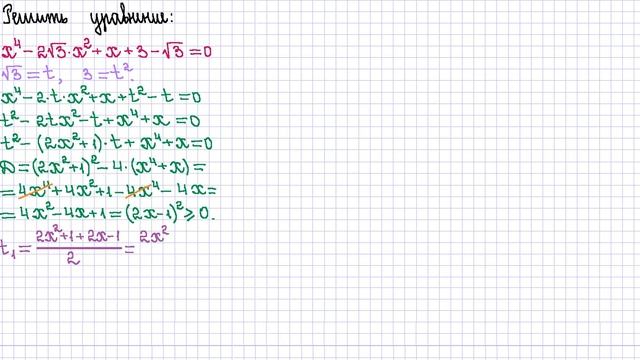 Решить уравнение:
x⁴ − 2√3·x² + x + 3 − √3 = 0
√3 = t, 3 = t².
x⁴ − 2·t·x² + x + t² − t = 0
t² − 2tx² − t + x⁴ + x = 0
t² − (2x² + 1)·t + x⁴ + x = 0
D = (2x² + 1)² − 4·(x⁴ + x) =
= 4x⁴ + 4x² + 1 − 4x⁴ − 4x =
= 4x² − 4x + 1 = (2x − 1)² ⩾ 0.
t₁ = (2x² + 1 + 2x − 1)/2 = 2x²